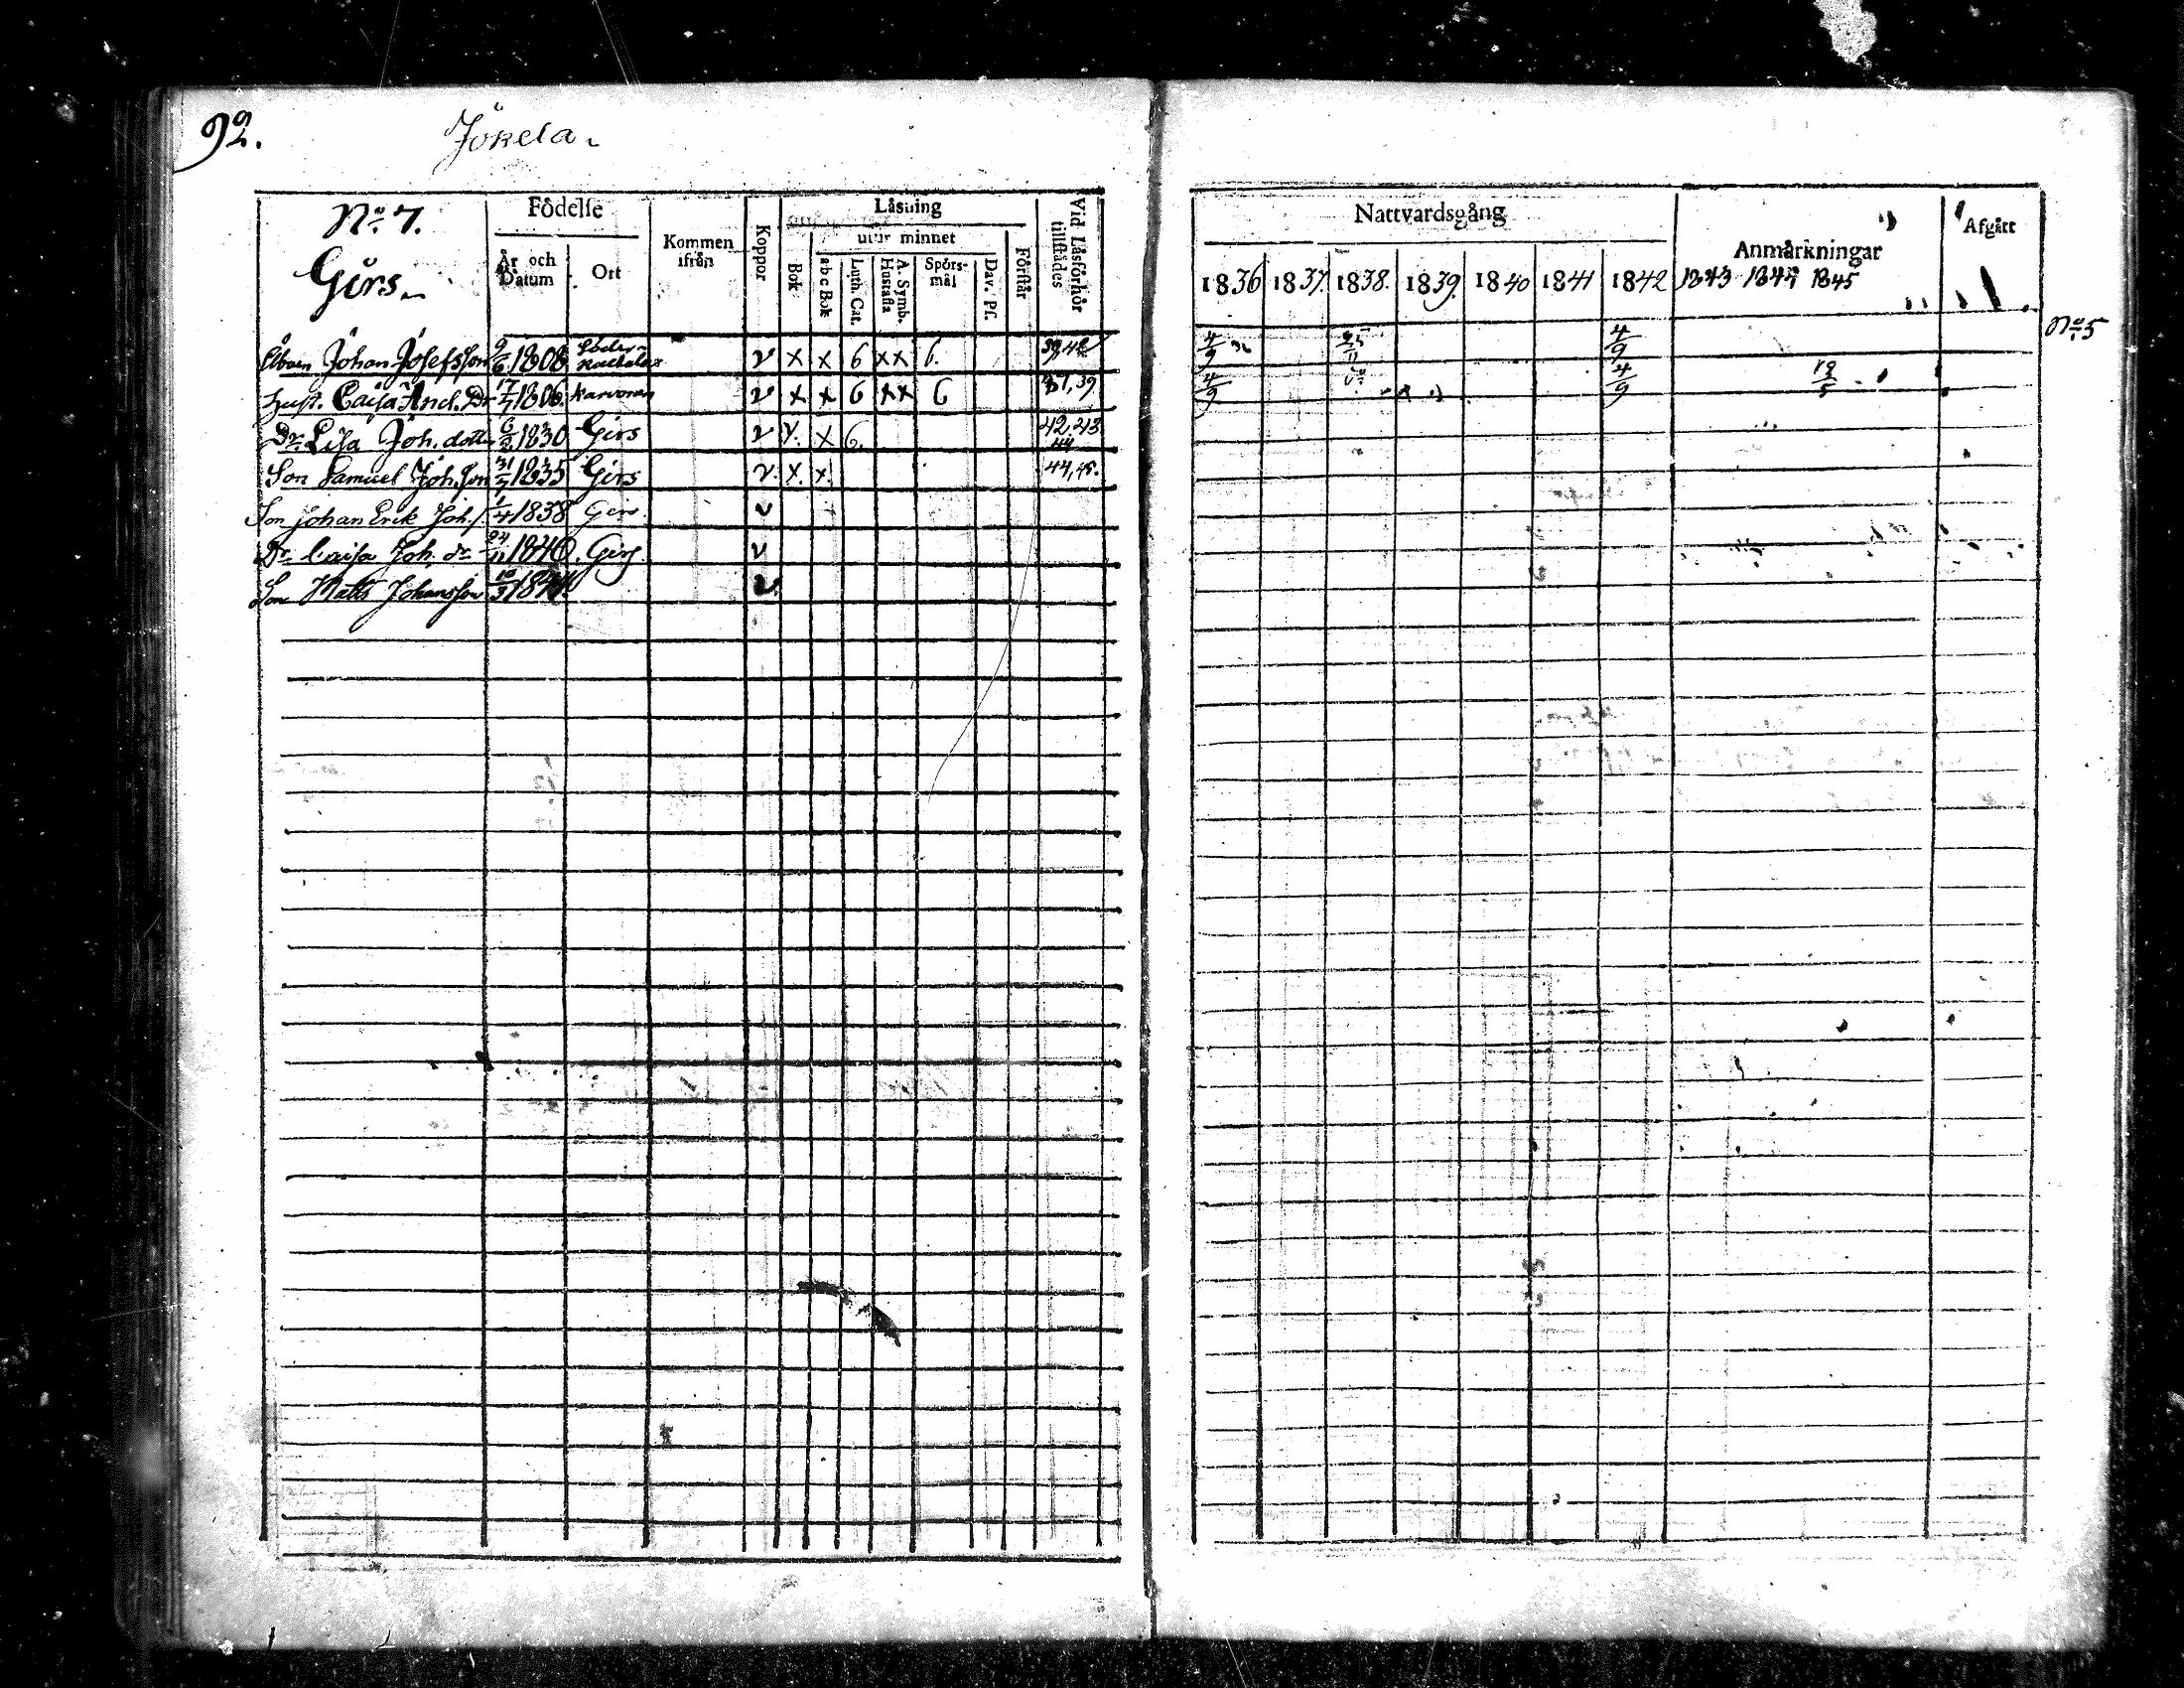 92.
Jökela.
No 7.
Girs.
Födelse
År och Datum
Ort
Kommen ifrån
Koppor
Läsning
utur minnet
Bok
abc Bok
Luth. Cat.
A. Symb. Hustafla
Spörsmål
Dav. Ps.
Förstår
Vid Läsförhör tillstädes
Åboen Johan Josefsson 9/6 1808 v x x 6 xx 6. 39,42
Hust. Caisa And. Dr 17/7 1806 Karvonen v x x 6 xx 6 37,39
Dr. Lisa Joh. dotter 6/2 1830 Girs v v. x 6. 42,43 44
Son Samuel Joh. son 31/7 1835 Girs v. x. x. 44,45.
Son Johan Erik Joh. s 1/4 1838 Girs. v
Dr. Caisa Joh. dr. 24/11 1840. Girs. v
Son Matts Johansson 10/3 1844. v.
Nattvardsgång
1836 1837. 1838. 1839. 1840 1841 1842
Anmärkningar
1843 1844 1845
Afgått
No 5
4/9 25/11 4/9
4/9 4/9 18/5